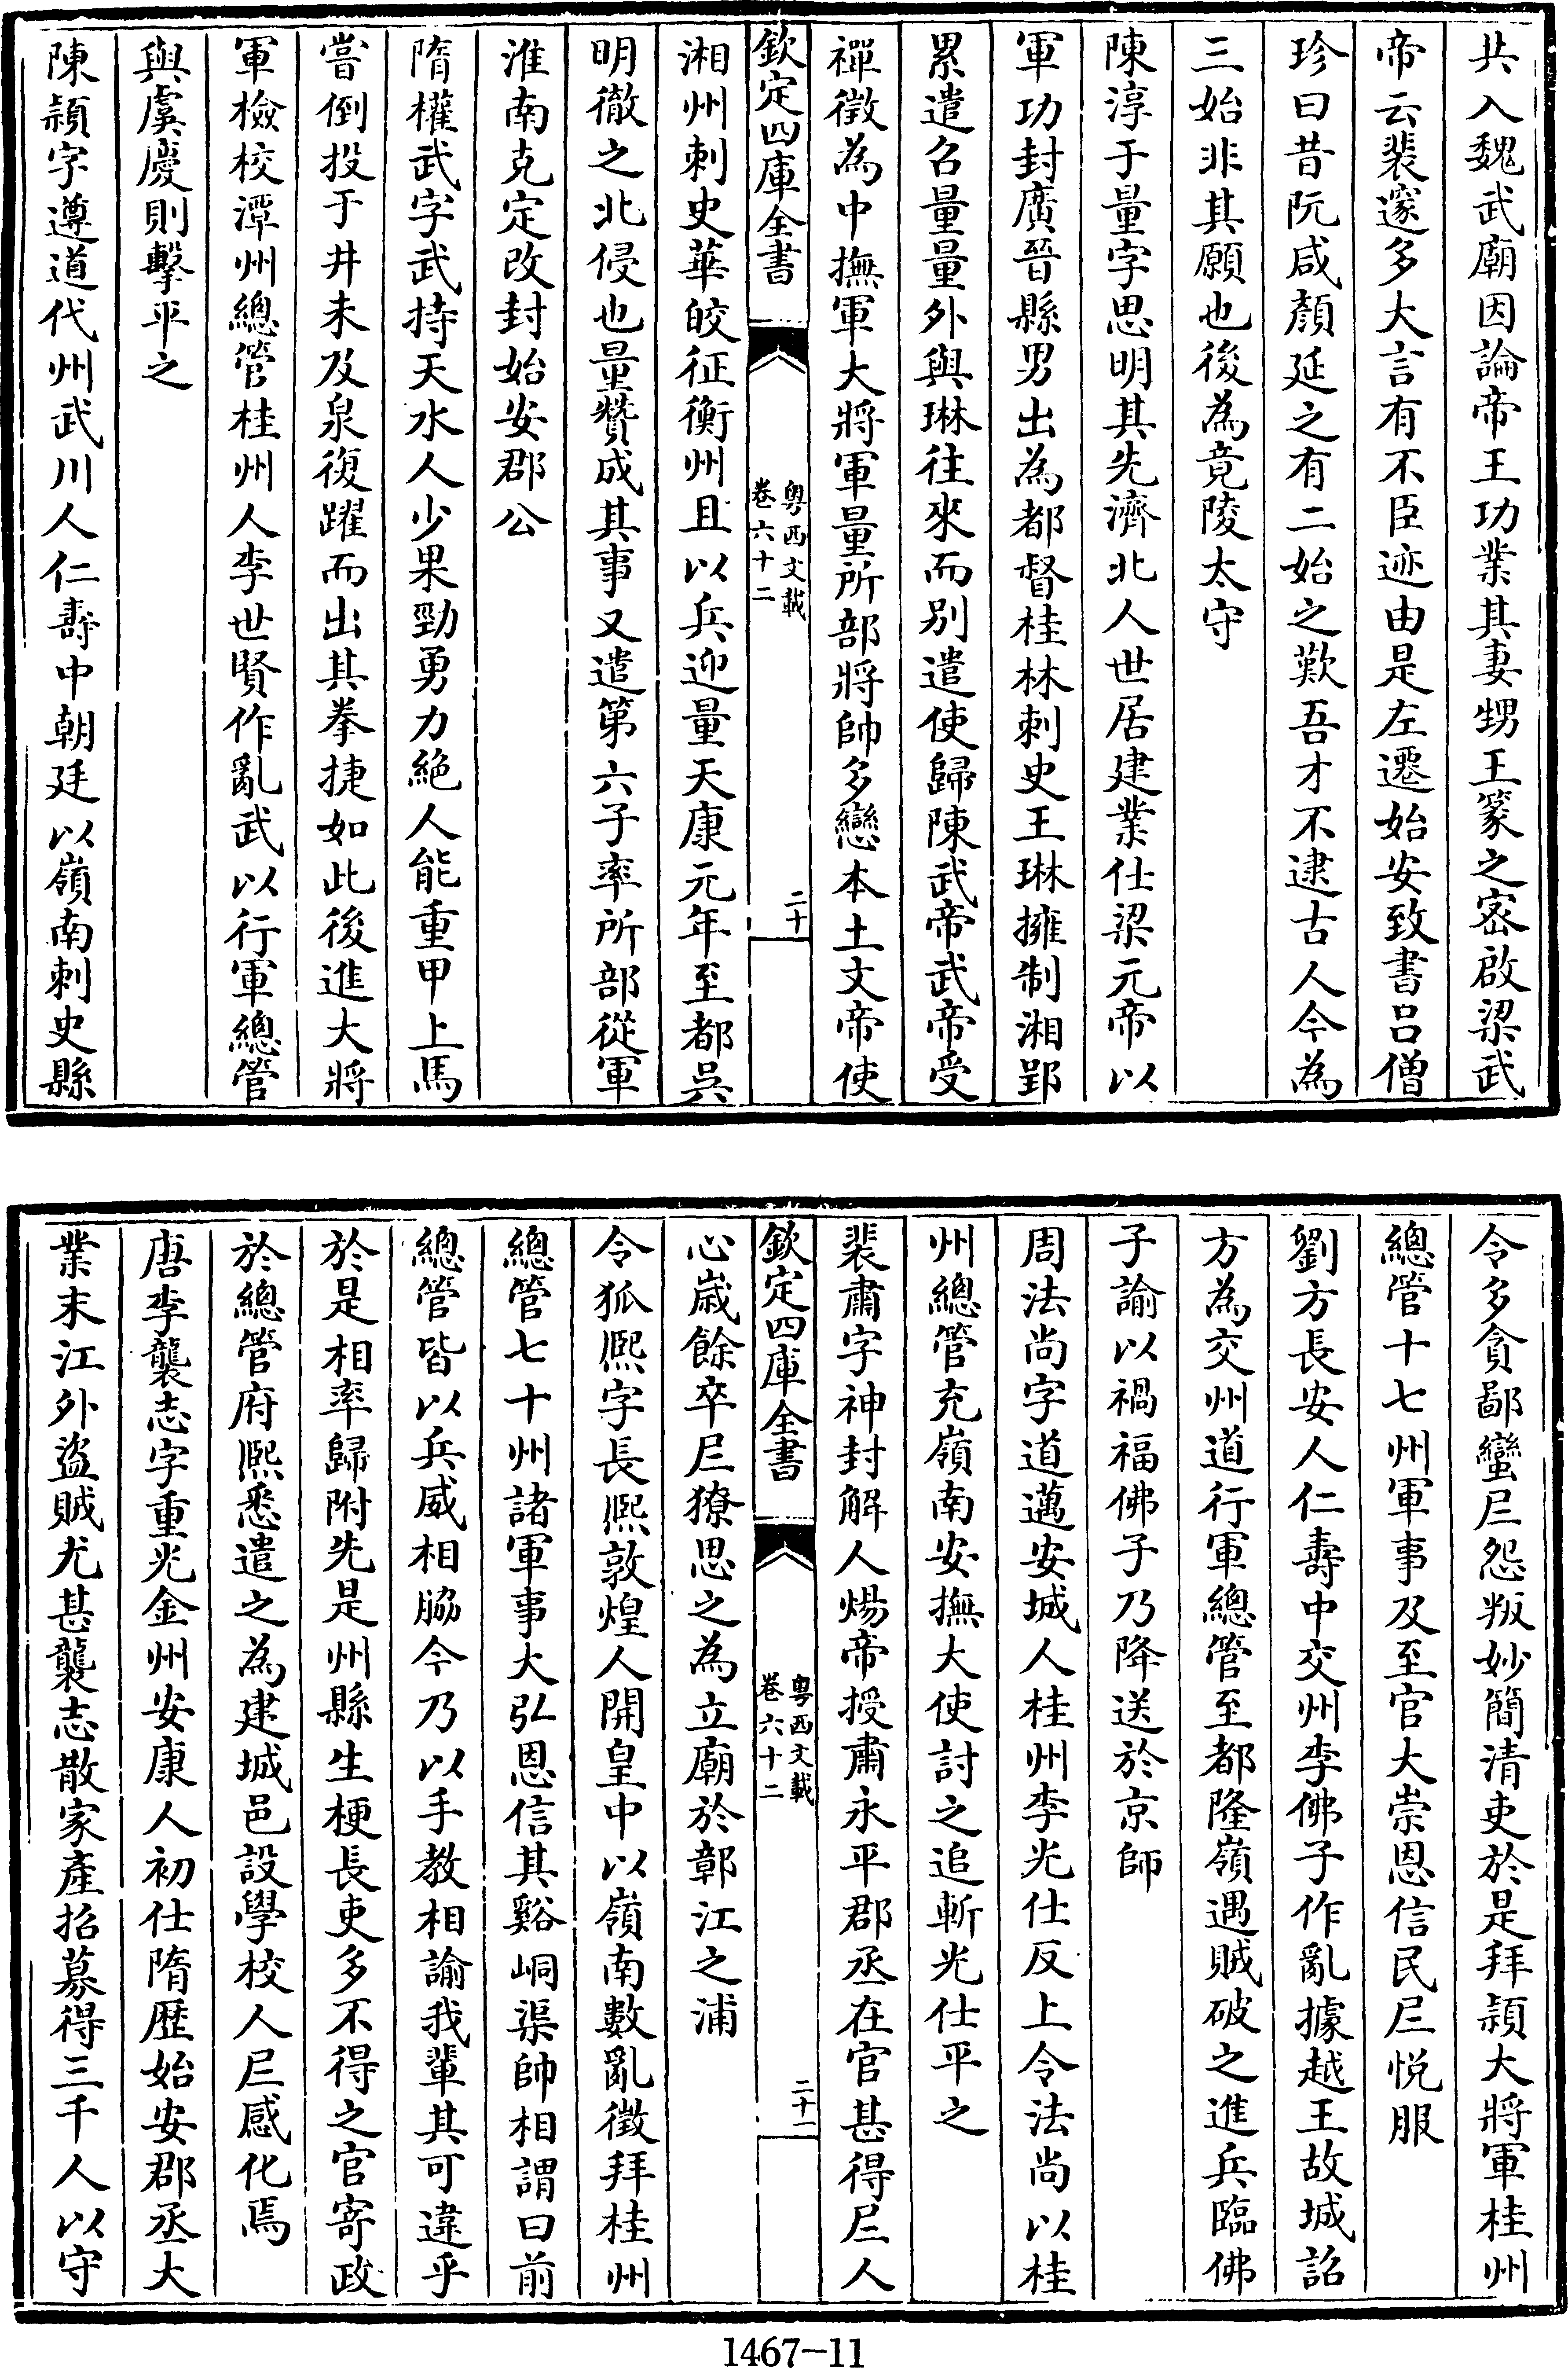 共入魏武廟因論帝王功業其妻甥王篆之密啟梁武
帝云裴邃多大言有不臣迹由是左遷始安致書呂僧
珍曰昔阮咸顏延之有二始之歎吾才不逮古人今為
三始非其願也後為竟陵太守
陳淳于量字思明其先濟北人世居建業仕梁元帝以
軍功封廣晉縣男出為都督桂林刺史王琳擁制湘郢
累遣召量量外與琳往來而别遣使歸陳武帝武帝受
禪徵為中撫軍大將軍量所部將帥多戀本土文帝使
欽定四庫全書
粵西文載
卷六十二
二十
湘州刺史華皎征衡州且以兵迎量天康元年至都吳
明徹之北侵也量贊成其事又遣第六子率所部從軍
淮南克定改封始安郡公
隋權武字武持天水人少果勁勇力絕人能重甲上馬
嘗倒投于井未及泉復躍而出其拳捷如此後進大將
軍檢校潭州總管桂州人李世賢作亂武以行軍總管
與虞慶則擊平之
陳頴字遵道代州武川人仁壽中朝廷以嶺南刺史縣
令多貪鄙蠻𡰥怨叛妙簡清吏於是拜頴大將軍桂州
總管十七州軍事及至官大崇恩信民𡰥悅服
劉方長安人仁壽中交州李佛子作亂據越王故城詔
方為交州道行軍總管至都隆嶺遇賊破之進兵臨佛
子諭以禍福佛子乃降送於京師
周法尚字道邁安城人桂州李光仕反上令法尚以桂
州總管充嶺南安撫大使討之追斬光仕平之
裴肅字神封解人煬帝授肅永平郡丞在官甚得𡰥人
欽定四庫全書
粵西文載
卷六十二
二十一
心歲餘卒𡰥獠思之為立廟於鄣江之浦
令狐熙字長熙敦煌人開皇中以嶺南數亂徵拜桂州
總管七十州諸軍事大弘恩信其谿峒渠帥相謂曰前
總管皆以兵威相脇今乃以手教相諭我輩其可違乎
於是相率歸附先是州縣生梗長吏多不得之官寄政
於總管府熙悉遣之為建城邑設學校人𡰥感化焉
唐李襲志字重光金州安康人初仕隋歴始安郡丞大
業末江外盜賊尤甚襲志散家產招募得三千人以守
1467-11